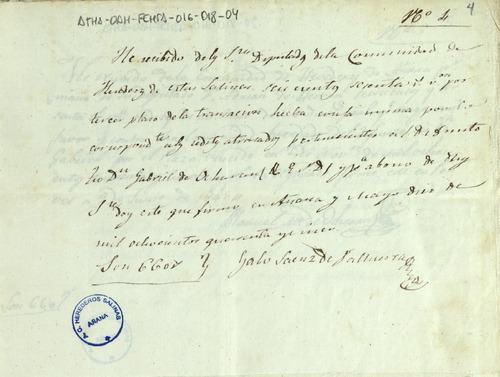 ATHA-DAH-FCHFA-016-018-04
Nº 4
4
He recibido de los Sres Diputados de la Comunidad de
Herederos de estas Salinas seis cientos sesenta rs vn por
tercer plazo de la transacion hecha con la misma por los
correspondtes a los reditos atrasados pertenecientes al difunto
tio Dn Gabriel de (Q. E. P. D) y pa abono de dhos
Sres doy este que firmo en Añana y Mayo dies de
mil ochocientos quarenta y cinco
Son 660 rs
Galo Saenz de Valluerca
A. Q. HEREDEROS SALINAS
AÑANA